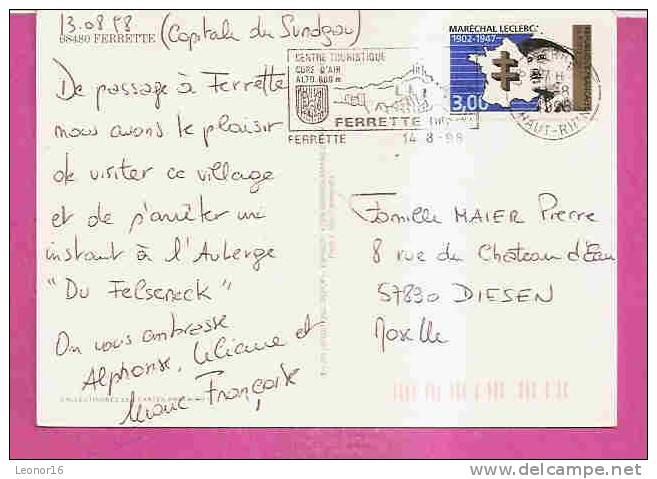 13.08.98 (Capitale du Sundgau)
68480 FERRETTE
CENTRE TOURISTIQUE
CURE D'AIR
ALT. 600 m
FERRETTE
FERRETTE 14-8-98
MARÉCHAL LECLERC
1902-1947
3,00
HAUT-RHIN
De passage à Ferrette
nous avons le plaisir
de visiter ce village
et de s'arrêter un
instant à l'Auberge
"Du Felseneck"
On vous embrasse
Alphonse, Liliane et
Marie Françoise
Famille MAIER Pierre
8 rue du Château d'Eau
57890 DIESEN
Moselle
Leonor16
http://www.delcampe.net